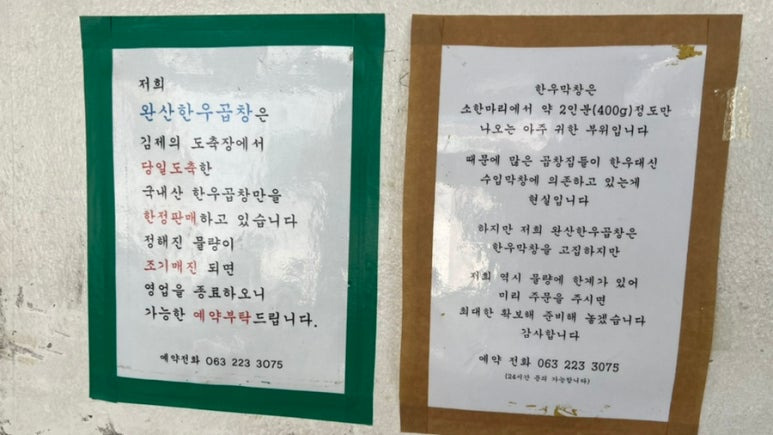 저희
완산한우곱창은
김제의 도축장에서
당일도축한
국내산 한우곱창만을
한정판매하고 있습니다
정해진 물량이
조기매진 되면
영업을 종료하오니
가능한 예약부탁드립니다.
예약전화 063 223 3075
한우막창은
소한마리에서 약 2인분(400g)정도만
나오는 아주 귀한 부위입니다
때문에 많은 곱창집들이 한우대신
수입막창에 의존하고 있는게
현실입니다
하지만 저희 완산한우곱창은
한우막창을 고집하지만
저희 역시 물량에 한계가 있어
미리 주문을 주시면
최대한 확보해 준비해 놓겠습니다
감사합니다
예약 전화 063 223 3075
(24시간 문의 가능합니다)